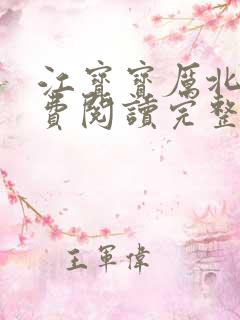 江寶寶厲北
費閱讀完整
王軍偉